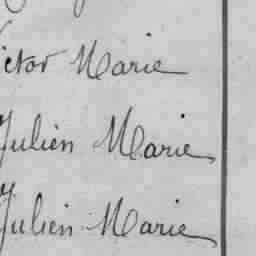 ictor Marie
Julien Marie
Julien Marie